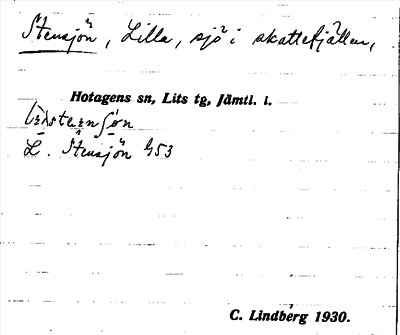 Stensjön, Lilla, sjö i skattefjällen,
Hotagens sn, Lits tg, Jämtl. l.
L. Stensjön G53
C. Lindberg 1930.